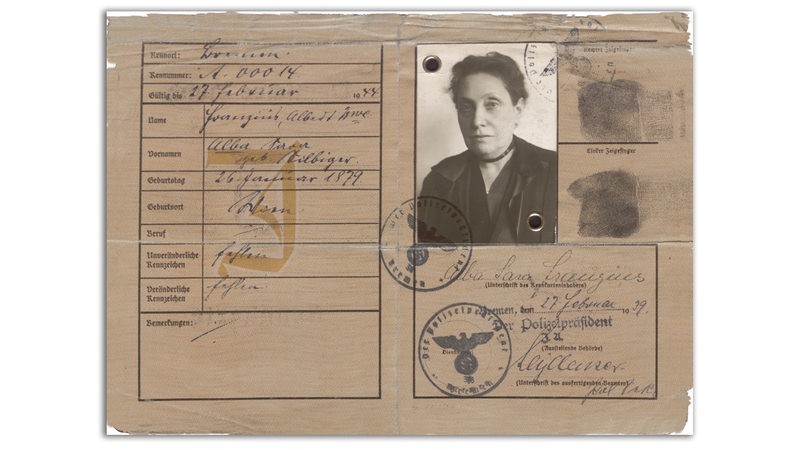 Kennort: Bremen
Kennummer: A. 00014
Gültig bis 27. Februar 1944
Name Franzius, Albert Wwe
Vornamen Alba Sara
geb. Silbiger
Geburtstag 26 Januar 1879
Geburtsort Wien
Beruf
Unveränderliche Kennzeichen fehlen
Veränderliche Kennzeichen fehlen
Bemerkungen:
J
Rechter Zeigefinger
Linker Zeigefinger
Der Polizeipräsident
Bremen
Alba Sara Franzius
(Unterschrift des Kennkarteninhabers)
Bremen, den 27 Februar 1939.
Der Polizeipräsident
J. A.
(Ausstellende Behörde)
Dienststempel
(Unterschrift des ausfertigenden Beamten)
Der Polizeipräsident
Bremen